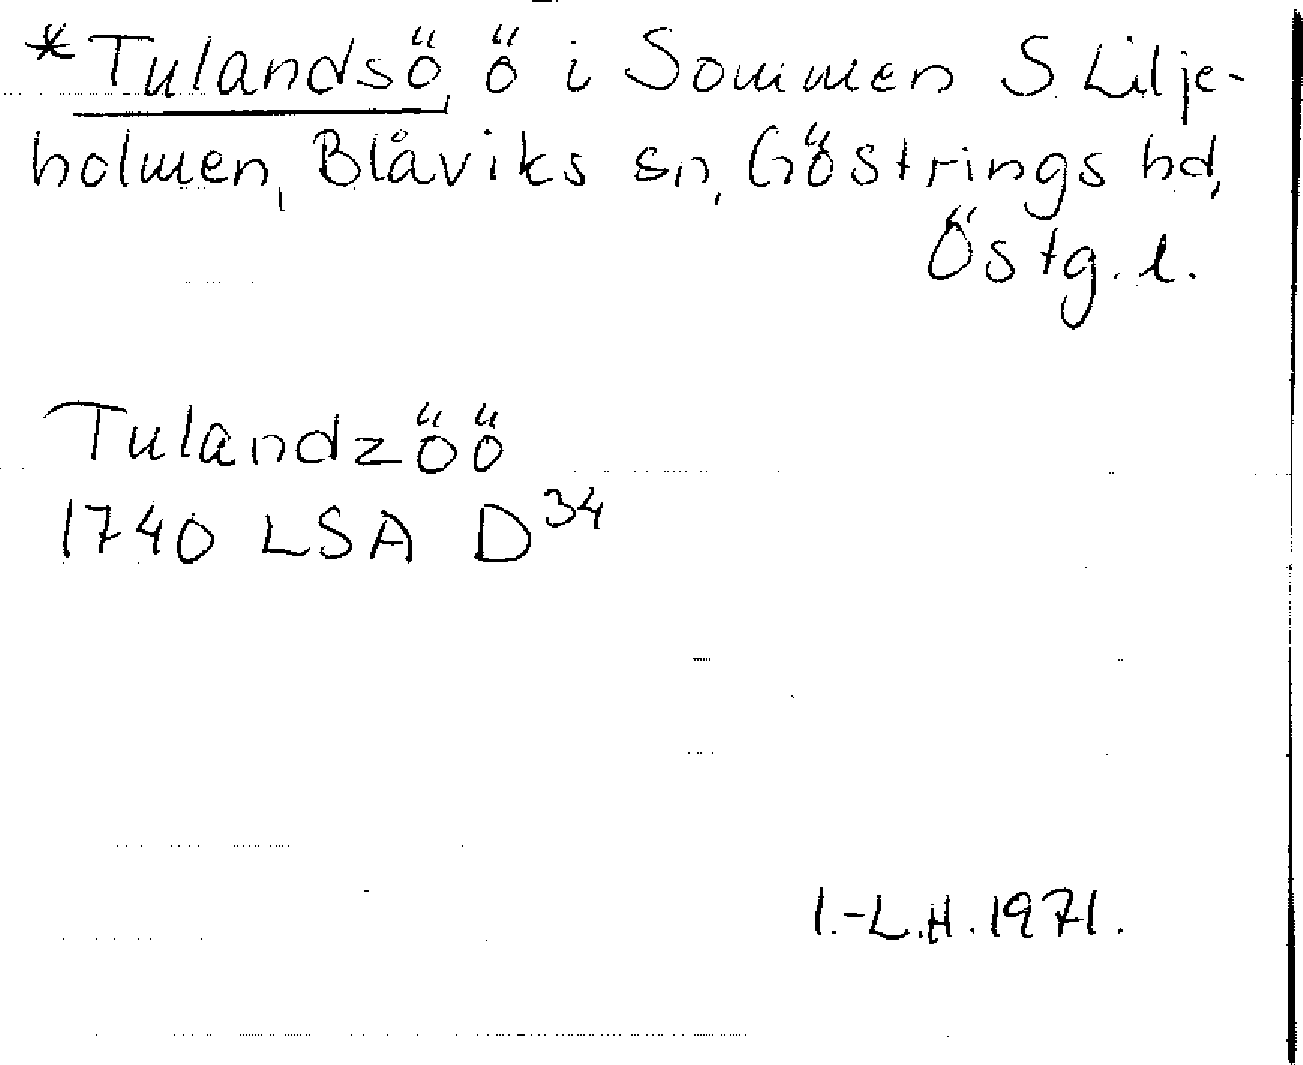 *Tulandsö, ö i Sommen S Lilje-
holmen, Blåviks sn, Göstrings hd,
Östg. l.
Tulandzöö
1740 LSA D34
I.-L.H. 1971.